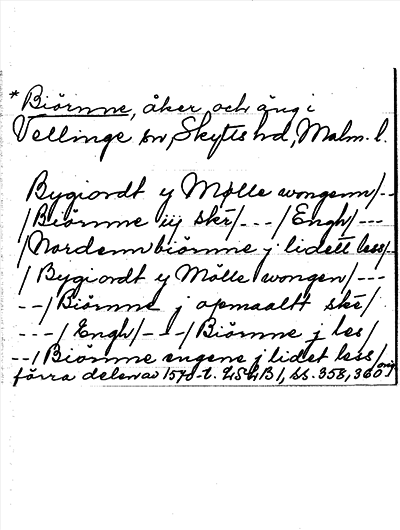 * Biörnne, åker och äng i
Vellinge sn, Skytts hd, Malm. l.
Bygiordt y Mølle wongenn/--
/Biörnne iij skè/---/Engh/---
/Nordennbiörnne j lidett less/-
/Bygiordt y Mölle wongen/---
--/Biörnne j opmaaltt skè/
---/Engh/---/Biörnne j les/
--/Biörnne engene j lidet less/
förra delen av 1570-t. LSÄB1, ss. 358, 360